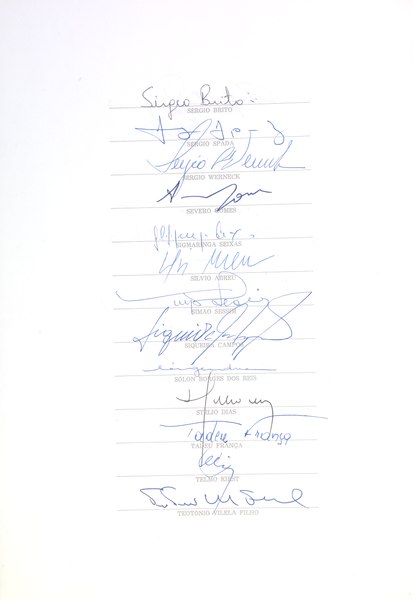 Sérgio Brito
SÉRGIO BRITO
SÉRGIO SPADA
Sérgio Werneck
SÉRGIO WERNECK
SEVERO GOMES
SIGMARINGA SEIXAS
SÍLVIO ABREU
SIMÃO SESSIM
Siqueira
SIQUEIRA CAMPOS
SÓLON BORGES DOS REIS
STÉLIO DIAS
Tadeu França
TADEU FRANÇA
TELMO KIRST
TEOTÔNIO VILELA FILHO